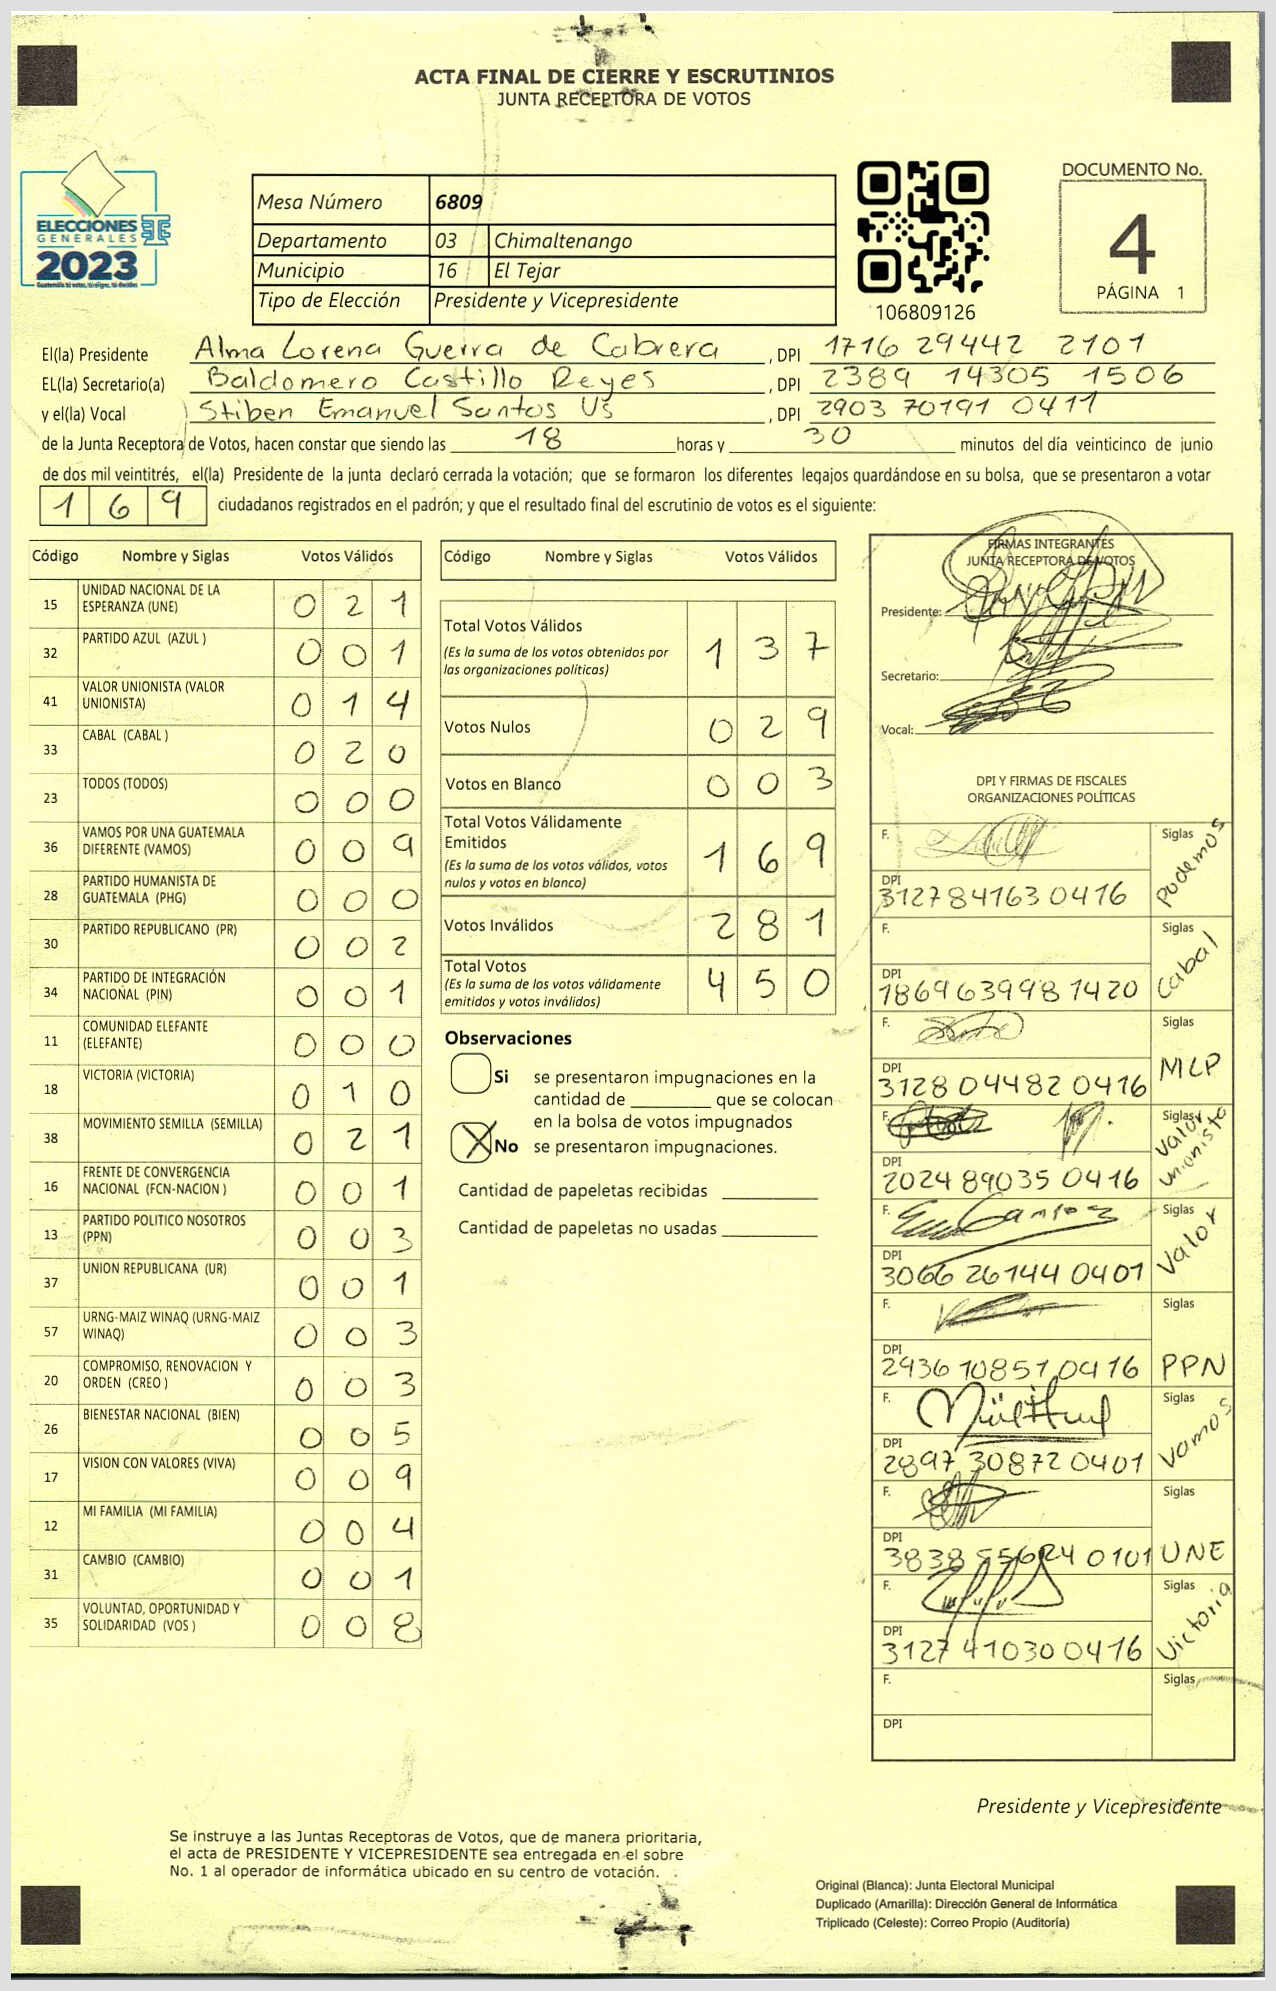 ACTA FINAL DE CIERRE Y ESCRUTINIOS
JUNTA RECEPTORA DE VOTOS
ELECCIONES
GENERALES
2023
Mesa Número 6809
Departamento 03 Chimaltenango
Municipio 16 El Tejar
Tipo de Elección Presidente y Vicepresidente
106809126
DOCUMENTO No.
4
PÁGINA 1
El(la) Presidente Alma Lorena Guerra de Cabrera, DPI 1716 29442 2101
EL(la) Secretario(a) Baldomero Castillo Reyes, DPI 2389 14305 1506
y el(la) Vocal Stiben Emanuel Santos Us, DPI 2903 70191 0411
de la Junta Receptora de Votos, hacen constar que siendo las 18 horas y 30 minutos del día veinticinco de junio
de dos mil veintitrés, el(la) Presidente de la junta declaró cerrada la votación; que se formaron los diferentes legajos guardándose en su bolsa, que se presentaron a votar
1 6 9 ciudadanos registrados en el padrón; y que el resultado final del escrutinio de votos es el siguiente:
Código Nombre y Siglas Votos Válidos
15 UNIDAD NACIONAL DE LA ESPERANZA (UNE) 0 2 1
32 PARTIDO AZUL (AZUL ) 0 0 1
41 VALOR UNIONISTA (VALOR UNIONISTA) 0 1 4
33 CABAL (CABAL ) 0 2 0
23 TODOS (TODOS) 0 0 0
36 VAMOS POR UNA GUATEMALA DIFERENTE (VAMOS) 0 0 9
28 PARTIDO HUMANISTA DE GUATEMALA (PHG) 0 0 0
30 PARTIDO REPUBLICANO (PR) 0 0 2
34 PARTIDO DE INTEGRACIÓN NACIONAL (PIN) 0 0 1
11 COMUNIDAD ELEFANTE (ELEFANTE) 0 0 0
18 VICTORIA (VICTORIA) 0 1 0
38 MOVIMIENTO SEMILLA (SEMILLA) 0 2 1
16 FRENTE DE CONVERGENCIA NACIONAL (FCN-NACION ) 0 0 1
13 PARTIDO POLITICO NOSOTROS (PPN) 0 0 3
37 UNION REPUBLICANA (UR) 0 0 1
57 URNG-MAIZ WINAQ (URNG-MAIZ WINAQ) 0 0 3
20 COMPROMISO, RENOVACION Y ORDEN (CREO ) 0 0 3
26 BIENESTAR NACIONAL (BIEN) 0 0 5
17 VISION CON VALORES (VIVA) 0 0 9
12 MI FAMILIA (MI FAMILIA) 0 0 4
31 CAMBIO (CAMBIO) 0 0 1
35 VOLUNTAD, OPORTUNIDAD Y SOLIDARIDAD (VOS ) 0 0 8
Código Nombre y Siglas Votos Válidos
Total Votos Válidos 1 3 7
(Es la suma de los votos obtenidos por
las organizaciones políticas)
Votos Nulos 0 2 9
Votos en Blanco 0 0 3
Total Votos Válidamente
Emitidos 1 6 9
(Es la suma de los votos válidos, votos
nulos y votos en blanco)
Votos Inválidos 2 8 1
Total Votos 4 5 0
(Es la suma de los votos válidamente
emitidos y votos inválidos)
Observaciones
Si se presentaron impugnaciones en la
cantidad de ________ que se colocan
en la bolsa de votos impugnados
X No se presentaron impugnaciones.
Cantidad de papeletas recibidas
Cantidad de papeletas no usadas
FIRMAS INTEGRANTES
JUNTA RECEPTORA DE VOTOS
Presidente:
Secretario:
Vocal:
DPI Y FIRMAS DE FISCALES
ORGANIZACIONES POLÍTICAS
F. Siglas Podemos
DPI 3127841630416
F. Siglas Cabal
DPI 1869639981420
F. Siglas MLP
DPI 3128 04482 0416
F. Siglas Valor unionista
DPI 2024 89035 0416
F. Siglas Valor
DPI 3066 26144 0401
F. Siglas PPN
DPI 2936 10851 0416
F. Siglas Vamos
DPI 2897 30872 0401
F. Siglas UNE
DPI 3838 0101
F. Siglas Victoria
DPI 3127 41030 0416
F. Siglas
DPI
Presidente y Vicepresidente
Se instruye a las Juntas Receptoras de Votos, que de manera prioritaria,
el acta de PRESIDENTE Y VICEPRESIDENTE sea entregada en el sobre
No. 1 al operador de informática ubicado en su centro de votación.
Original (Blanca): Junta Electoral Municipal
Duplicado (Amarilla): Dirección General de Informática
Triplicado (Celeste): Correo Propio (Auditoría)